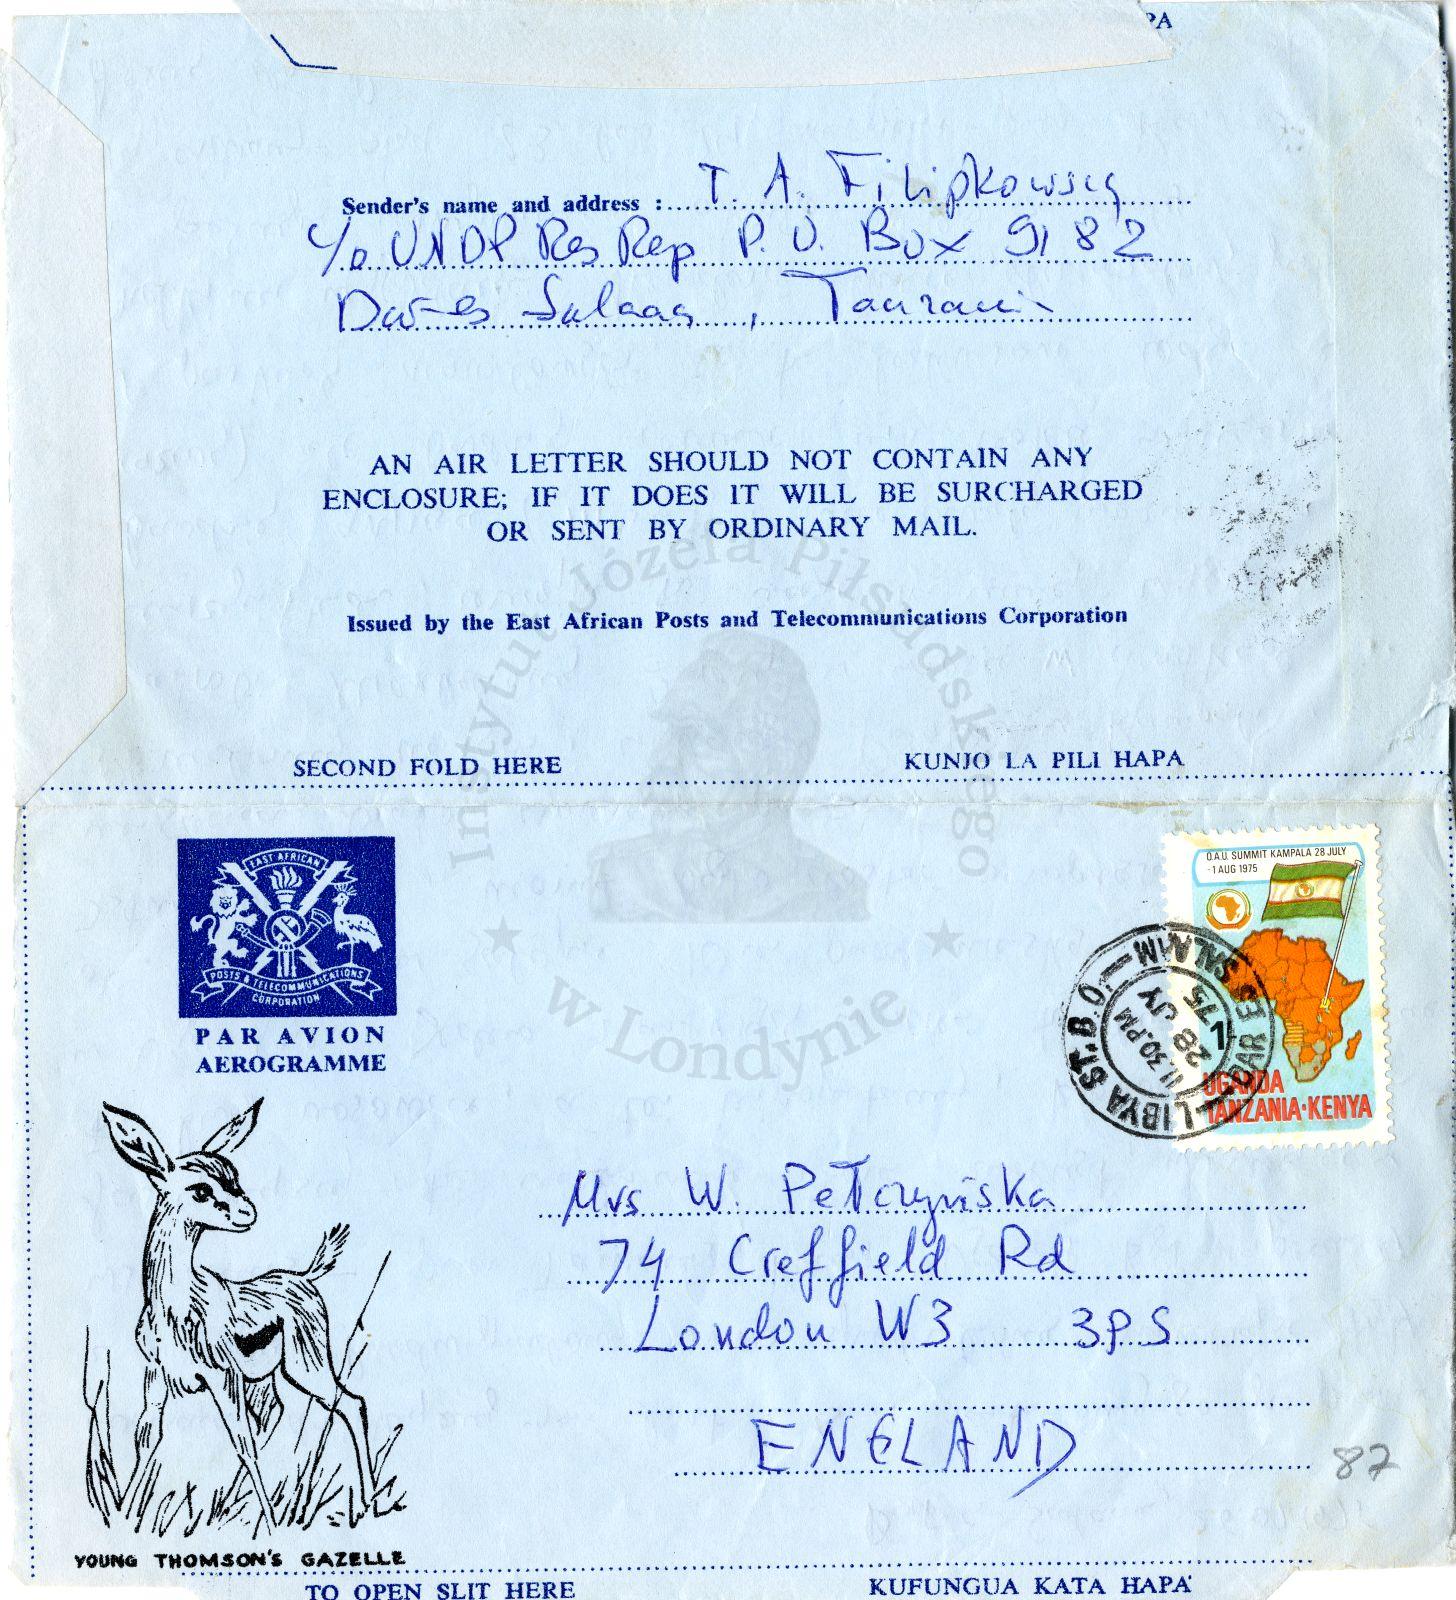 PA
Sender's name and address : T A. Filipkowscy
c/o UNDP Res Rep P.O. Box 9182
Dar-es Salaam, Tanzania
AN AIR LETTER SHOULD NOT CONTAIN ANY
ENCLOSURE; IF IT DOES IT WILL BE SURCHARGED
OR SENT BY ORDINARY MAIL.
Issued by the East African Posts and Telecommunications Corporation
Instytut Józefa Piłsudskiego
w Londynie
SECOND FOLD HERE KUNJO LA PILI HAPA
EAST AFRICAN
POSTS & TELECOMMUNICATIONS
CORPORATION
PAR AVION
AEROGRAMME
O.A.U. SUMMIT KAMPALA 28 JULY
-1 AUG 1975
1/-
UGANDA
TANZANIA·KENYA
LIBYA ST. B.O.
DAR ES SALAAM
11.30.PM
28 JY
75
Mrs W. Pełczyńska
74 Creffield Rd
London W3 3PS
ENGLAND
87
YOUNG THOMSON'S GAZELLE
TO OPEN SLIT HERE KUFUNGUA KATA HAPA